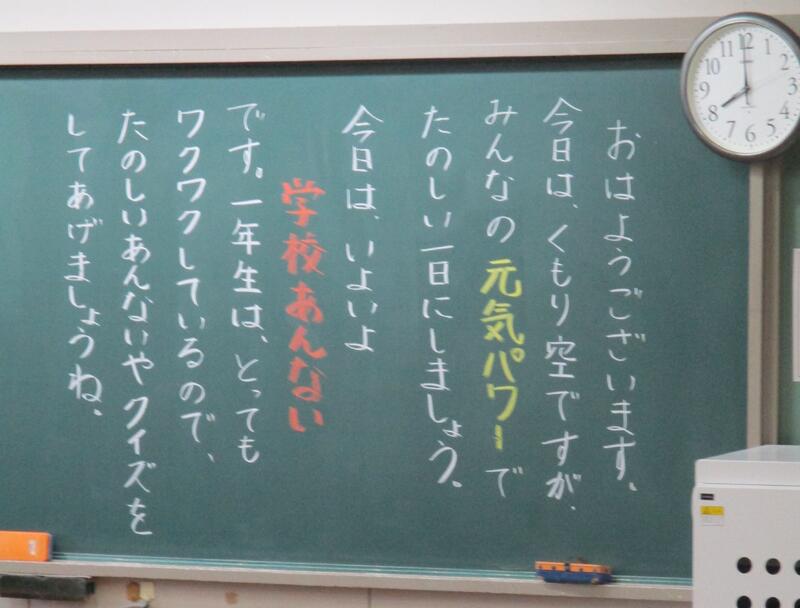 おはようございます。
今日は、くもり空ですが、
みんなの元気パワーで
たのしい一日にしましょう。
今日は、いよいよ
学校あんない
です。一年生は、とっても
ワクワクしているので、
たのしいあんないやクイズを
してあげましょうね。
12
1
2
3
4
5
6
7
8
9
10
11